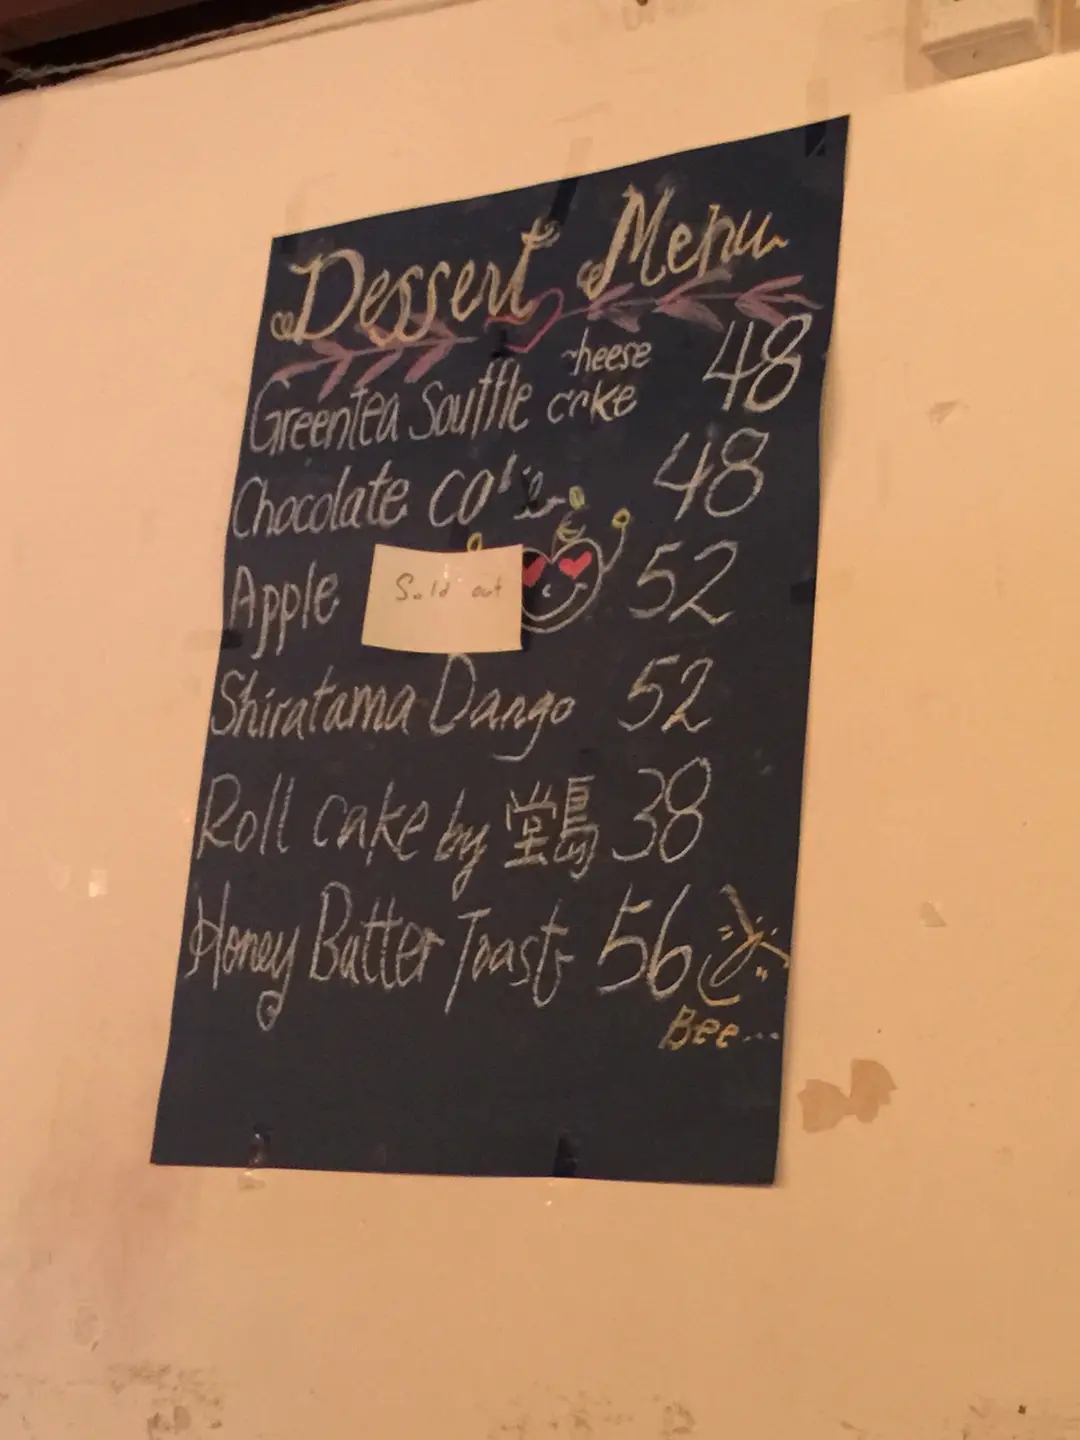 Dessert Menu
Greentea Souffle cheese cake 48
Chocolate cake 48
Apple Sold out 52
Shiratama Dango 52
Roll cake by 堂島 38
Honey Butter Toast 56
Bee...